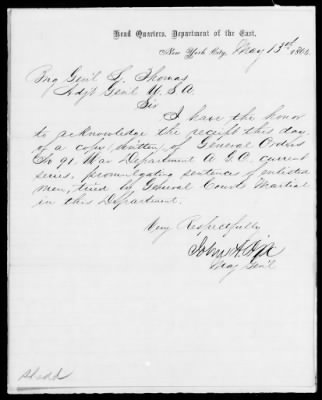 Head Quarters, Department of the East,
New York City, May 13th 1864
Brig Gen'l L. Thomas
Adjt Gen'l U.S.A
Sir
I have the honor
to acknowledge the receipt this day
of a copy (written) of General Orders
No 91. War Department A.G.O. current
series, promulgating sentences of enlisted
men, tried by General Courts Martial
in this Department.
Very Respectfully
John A. Dix
Maj Gen'l